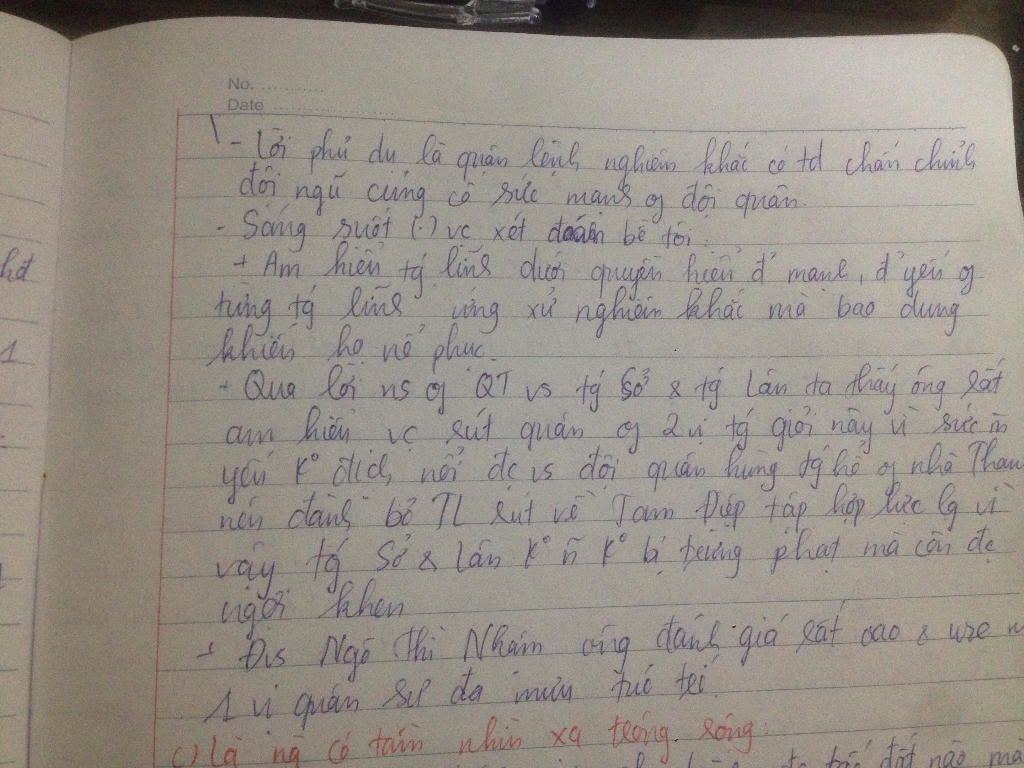 No. ............
Date ............
- Lời phủ dụ là quân lệnh nghiêm khắc có td chấn chỉnh
đội ngũ củng cố sức mạnh of đội quân.
- Sáng suốt (.) vc xét đoán bề tôi:
+ Am hiểu tg lĩnh dưới quyền hiểu đ' mạnh, đ' yếu of
từng tg lĩnh ứng xử nghiêm khắc mà bao dung
khiến họ nể phục.
+ Qua lời ns of QT vs tg Sở & tg Lân ta thấy ông rất
am hiểu vc rút quân of 2 vị tg giỏi này vì sức
yếu K° địch nổi đc vs đội quân hùng tg hổ of nhà Thanh
nên đành bỏ TL rút về Tam Điệp tập hợp lực lg vì
vậy tg Sở & Lân K° K° bị trừng phạt mà còn đc
ngợi khen
+ Đvs Ngô Thì Nhậm ông đánh giá rất cao &
1 vị quân sư đa mưu túc trí.
c) Là ng có tầm nhìn xa trông rộng:
đất nào mà
1